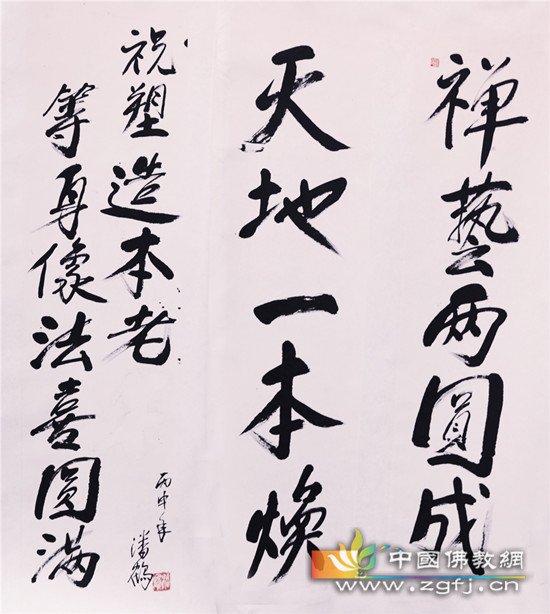 禅藝两圓成
天地一本焕
祝塑造本老
等身像法喜圓满
丙申年
潘鹤
中國佛教網
www.zgfj.cn